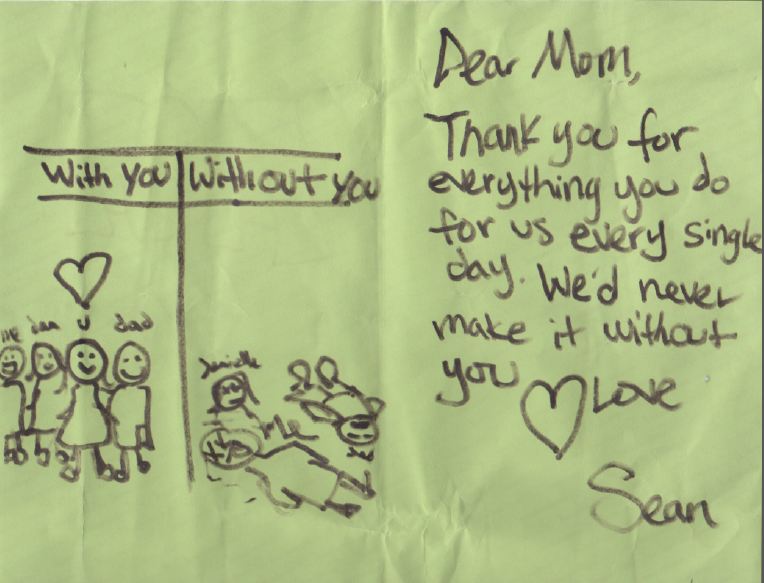 With you Without you
me dan u dad
Danielle
me
Dear Mom,
Thank you for
everything you do
for us every single
day. We'd never
make it without
you
Love
Sean